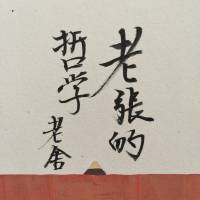 老張的
哲学
老舍